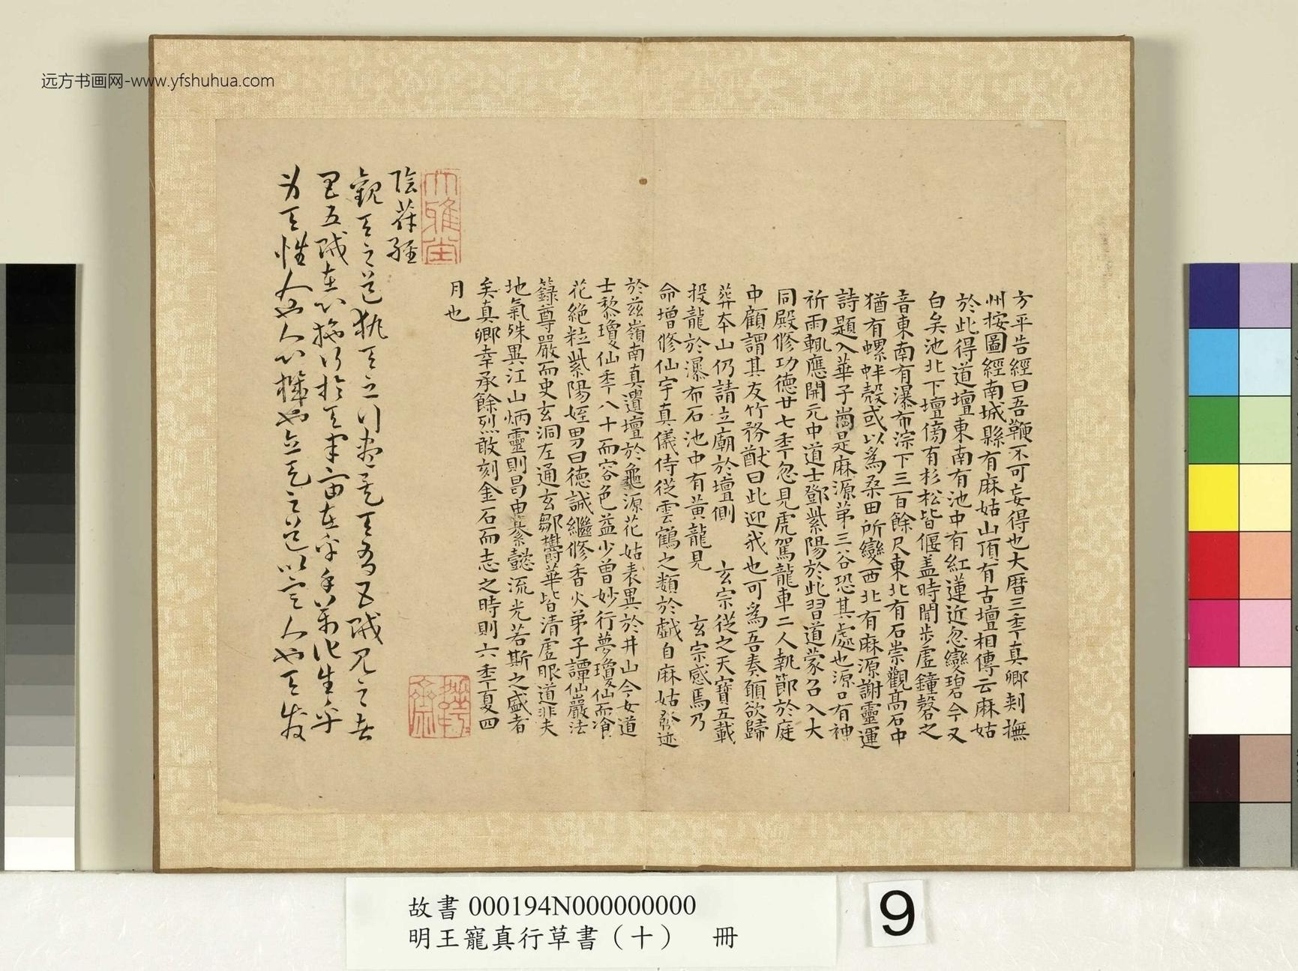 远方书画网-www.yfshuhua.com
方平告經曰吾鞭不可妄得也大曆三季真卿刺撫
州按圖經南城縣有麻姑山頂有古壇相傳云麻姑
於此得道壇東南有池中有紅蓮近忽變碧今又
白矣池北下壇傍有杉松皆偃盖時聞步虛鐘磬之
音東南有瀑布淙下三百餘尺東北有石崇觀高石中
猶有螺蚌殼或以為桑田所變西北有麻源謝靈運
詩題入華子崗是麻源第三谷恐其處也源口有神
祈雨輒應開元中道士鄧紫陽於此習道蒙召入大
同殿修功德廿七季忽見虎駕龍車二人執節於庭
中顧謂其友竹務猷曰此迎我也可為吾奏願欲歸
葬夲山仍請立廟於壇側 玄宗從之天寶五載
投龍於瀑布石池中有黃龍見 玄宗感焉乃
命增修仙宇真儀侍從雲鶴之類於戲自麻姑發迹
於茲嶺南真遺壇於龜源花姑表異於井山今女道
士黎瓊仙季八十而容色益少曾妙行夢瓊仙而飡
花絕粒紫陽姪男曰德誠繼修香火弟子譚仙巖法
籙尊嚴而史玄洞左通玄鄒欝華皆清虛眼道非夫
地氣殊異江山炳靈則曷由纂懿流光若斯之盛者
矣真卿幸承餘烈敢刻金石而志之時則六季夏四
月也
大雅堂
陰苻經
觀天之道執天之行盡矣天有五賊見之者
昌五賊在心施行於天宇宙在乎手萬化生乎
身天性人也人心機也立天之道以定人也天發
故書 000194N000000000
明王寵真行草書（十） 冊
9